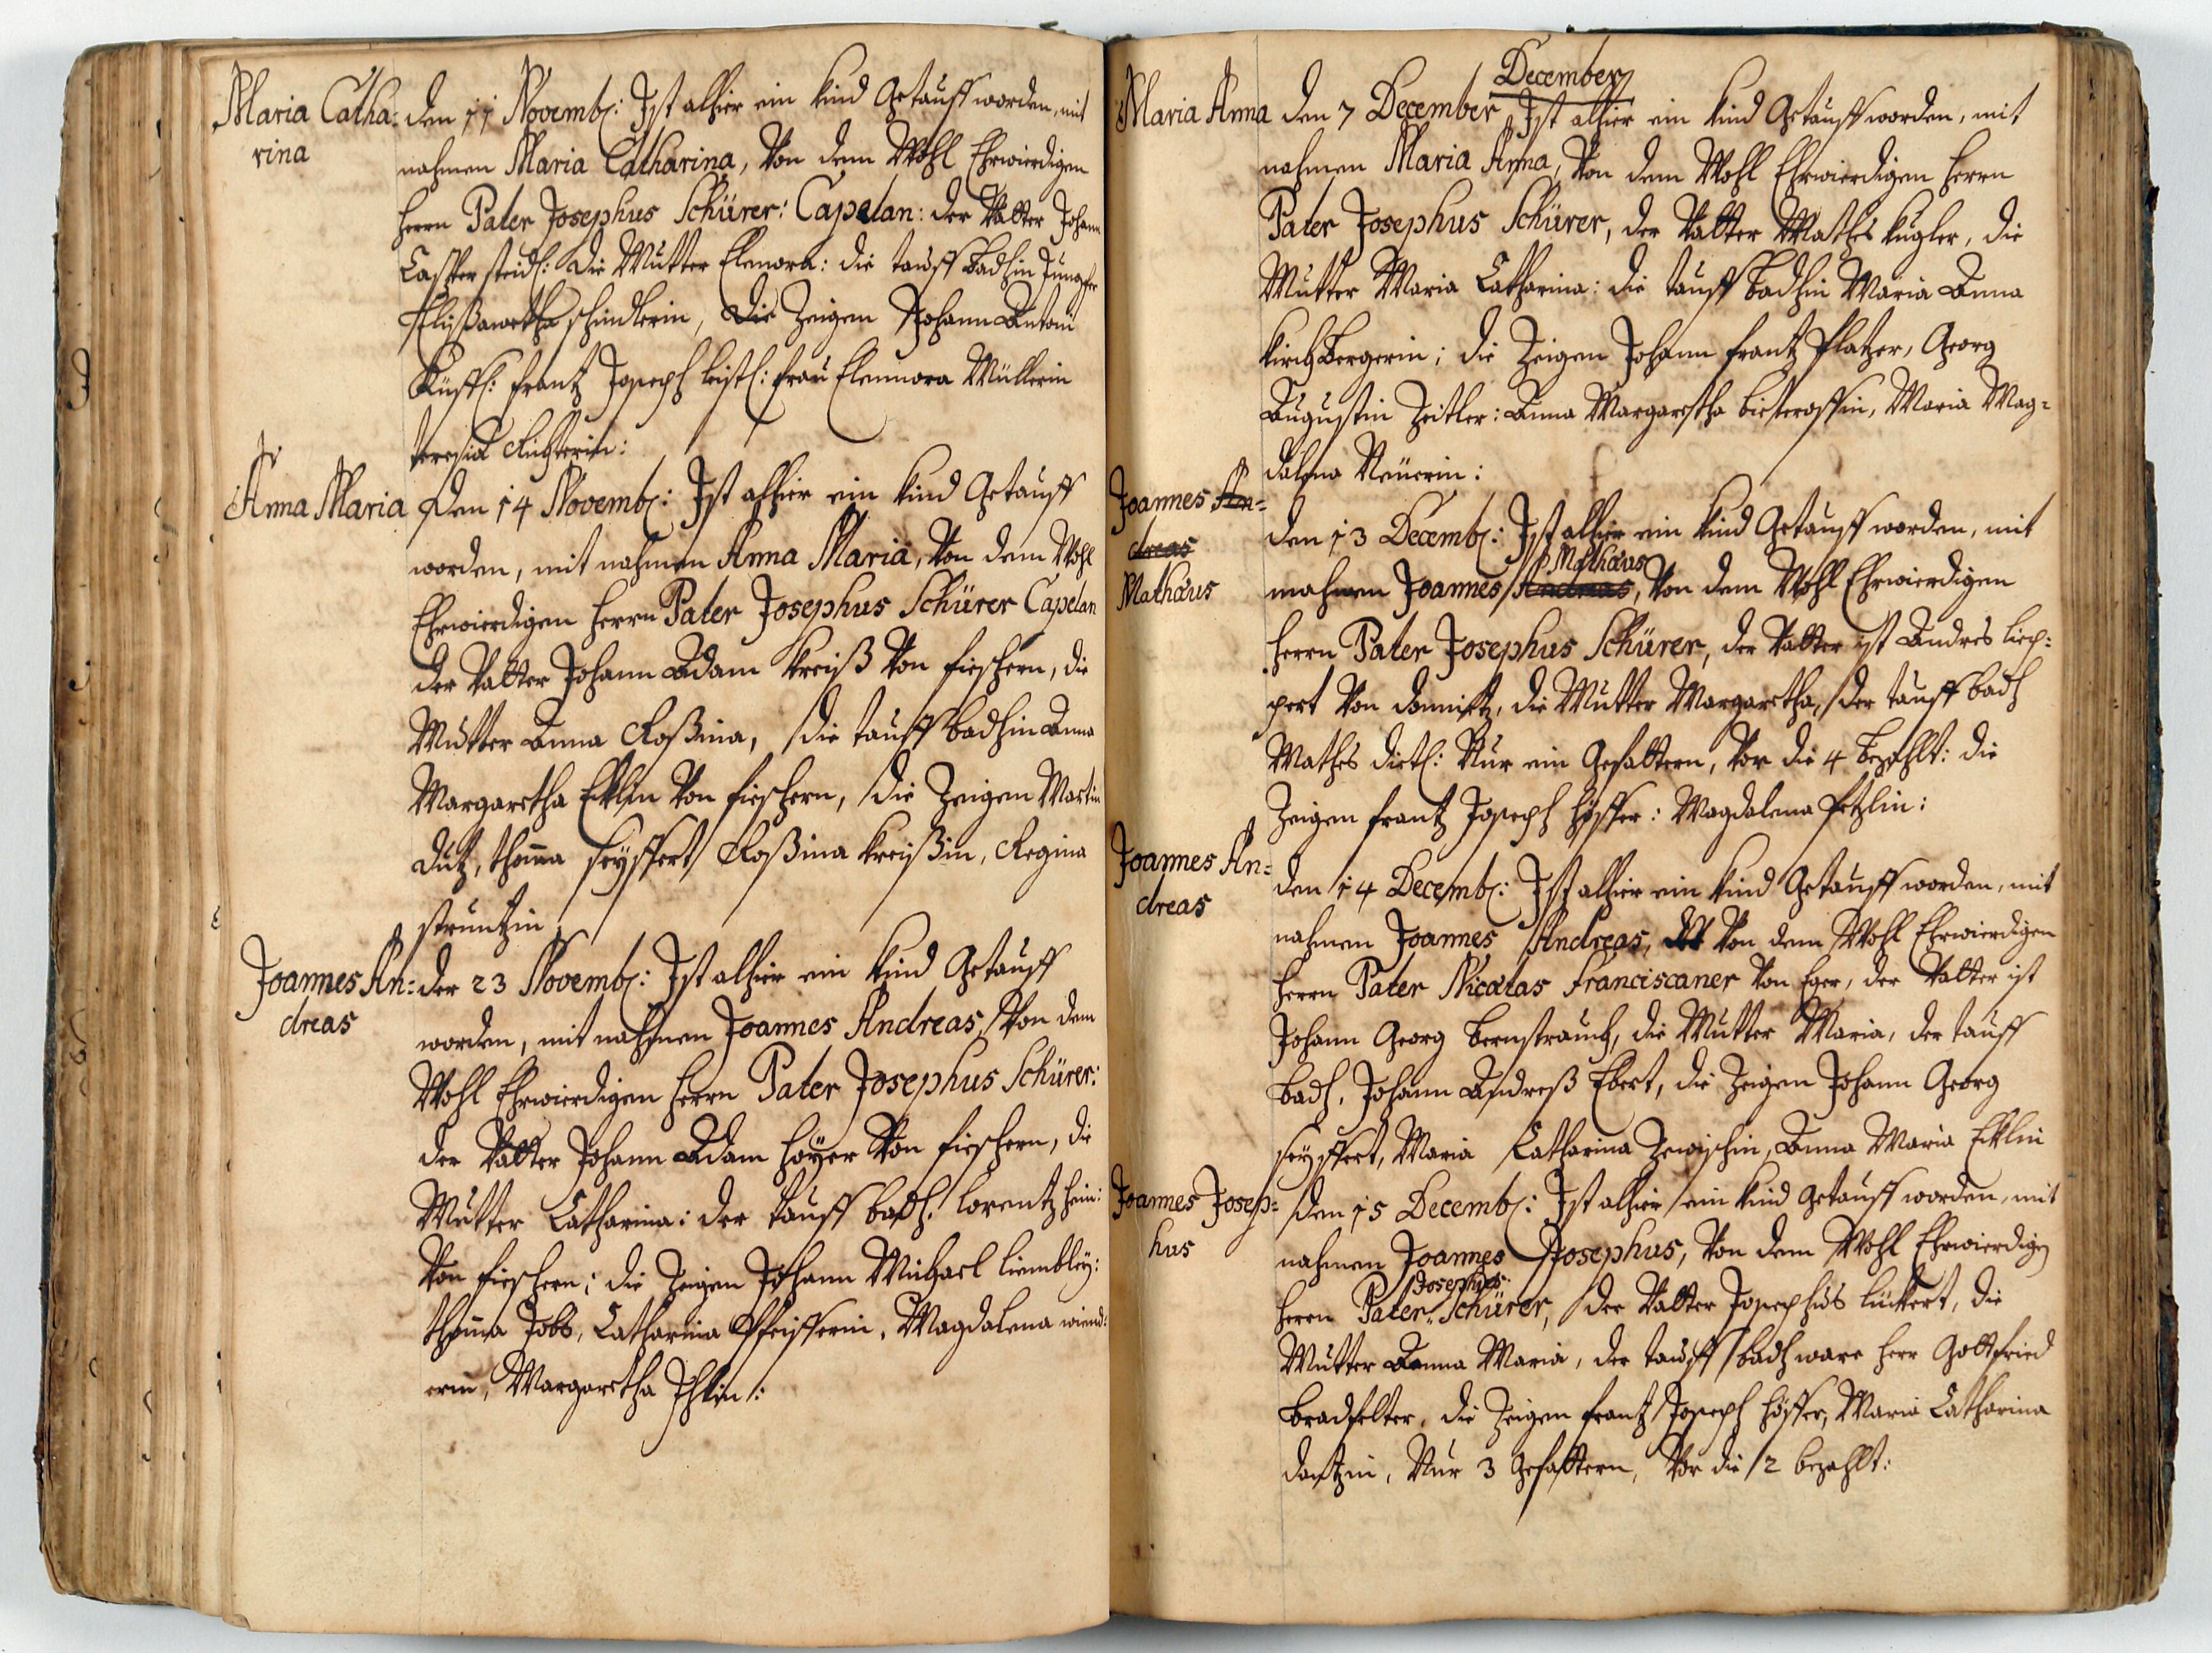 Maria Catha:
rina
den 11 Novemb: Ist alhier ein kind Getauff worden, mit
nahmen Maria Catharina, Von dem Wohl Ehrwierdigen
herrn Pater Josephus Schürer: Capelan: der Vatter Johann
Casper steidl: die Mutter Elenora: die tauff badhin Jungfr
Elißawetha schindlerin, die Zeigen Johann Antoni
frantz Joseph leistl: frau Elennora Müllerin
teresia Richterin:
Anna Maria
Den 14 Novemb: Ist alhier ein kind Getauff
worden, mit nahmen Anna Maria, Von dem Wohl
Ehrwierdigen herrn Pater Josephus Schürer Capelan
der Vatter Johann Adam kreiß Von fischern, die
Mutter Anna Roßina, die tauff badhin Anna
Margaretha Ecklin Von fischern, die Zeigen Martin
dutz, thoma seyffert Roßina kreißin, Regina
struntzin
Joannes An:
dreas
der 23 Novemb: Ist alhier ein kind Getauff
worden, mit nahmen Joannes Andreas, Von dem
Wohl Ehrwierdigen herrn Pater Josephus Schürer:
der Vatter Johann Adam hoyer Von fischern, die
Mutter Catharina: der tauff badh. lorentz hein:
Von fischern; die Zeigen Johann Michael liembley:
thoma Jobs, Catharina Pfeifferin, Magdalena wiend:
erin, Margaretha Ihlin:
December
Maria Anna
den 7 December Ist alhier ein kind Getauff worden, mit
nahmen Maria Anna, Von dem Wohl Ehrwierdigen herrn
Pater Josephus Schürer, der Vatter Mathes kugler, die
Mutter Maria Catharina: die tauff badhin Maria Anna
kirchbergerin; die Zeigen Johann frantz Platzer, Georg
Augustin Zeitler: Anna Margaretha bieteroffin, Maria Mag=
dalena Neuerin:
Joannes An=
dreas
Mathäus
den 13 Decemb: Ist alhier ein kind Getauff worden, mit
Mathäus
nahmen Joannes Andreas, Von dem Wohl Ehrwierdigen
herrn Pater Josephus Schürer, der Vatter ist Andres liep:
pert Von domnitz, die Mutter Margaretha, der tauff badh
Mathes dietl: Nur ein Gefattern, Vor die 4 bezahlt: die
Zeigen frantz Joseph höffer: Magdalena petzlin:
Joannes An=
dreas
den 14 Decemb: Ist alhier ein kind Getauff worden, mit
nahmen Joannes Andreas, Von dem Wohl Ehrwierdigen
herrn Pater Nicolas Franciscaner Von Eger, der Vatter ist
Johann Georg bernstrauch, die Mutter Maria, der tauff
badh, Johann Andreß Ebert, die Zeigen Johann Georg
seyffert, Maria Catharina Zewischin, Anna Maria Ecklin
Joannes Josep=
hus
den 15 Decemb: Ist alhier ein kind Getauff worden, mit
nahmen Joannes Josephus, Von dem Wohl Ehrwierdigen
Josephus
herrn Pater Schürer, der Vatter Josephus lückert, die
Mutter Anna Maria, der tauff badh ware herr Gottfried
bradfelter, die Zeigen frantz Joseph höffer, Maria Catharina
dantzin, Nur 3 Gefattern, Vor die 2 bezahlt: